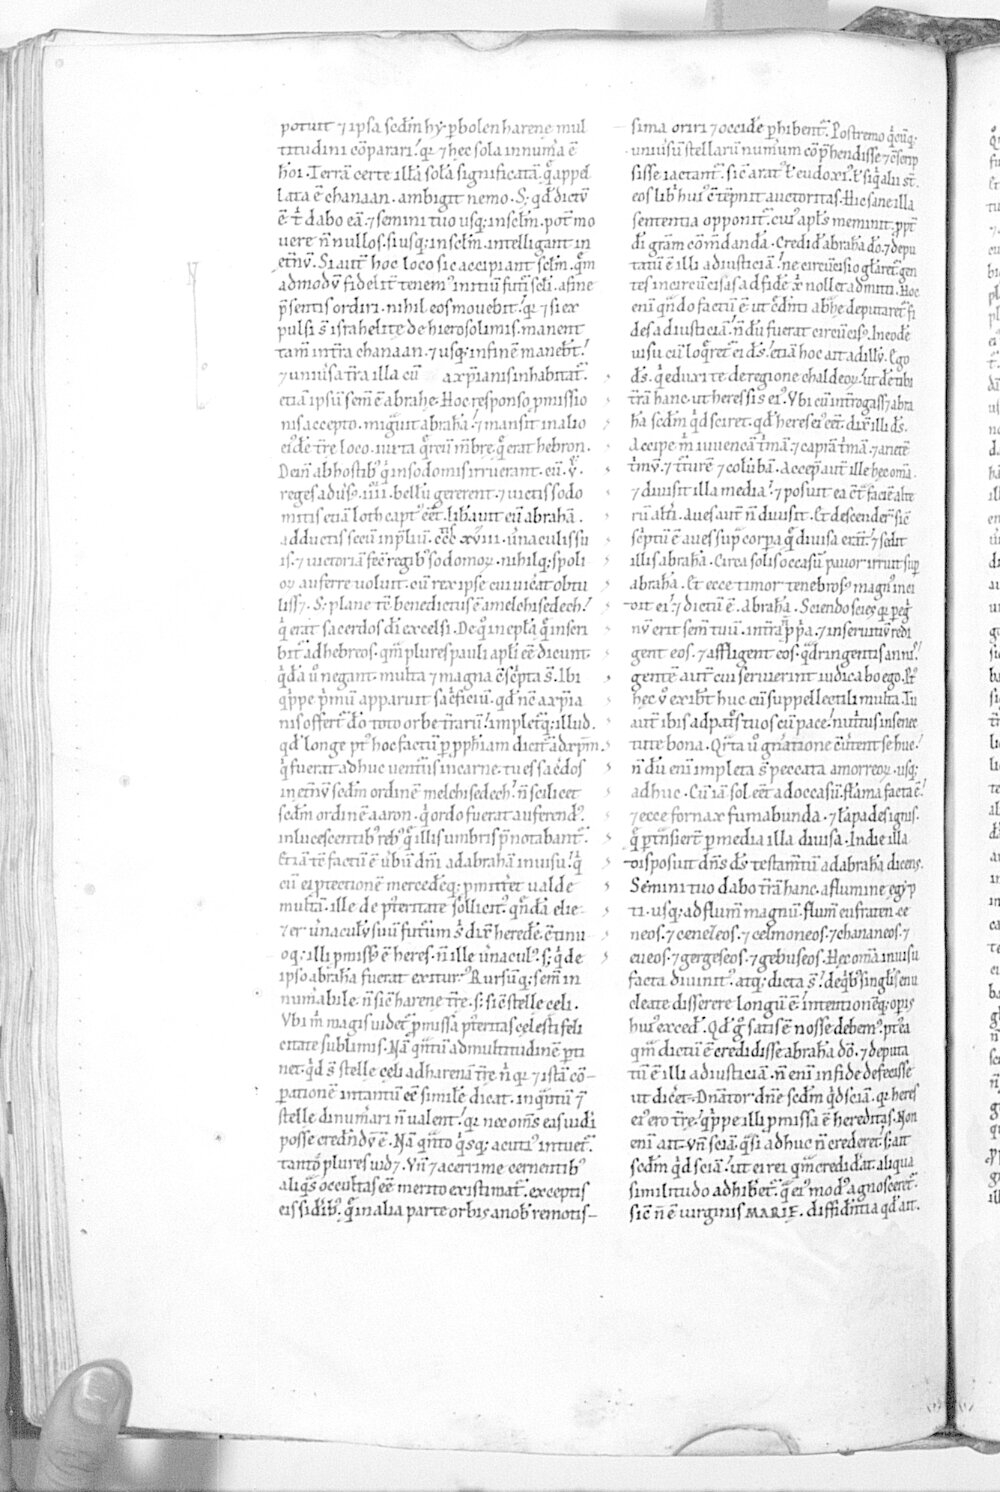 potuit ⁊ ipsa sedm̄ hẏꝑbolen harene mul
titudini cōparari! qr ⁊ hec sola innum̄a ē
hōi. Terrā certe illā solā significatā. q̄ appel
lata ē chanaan. ambigit nemo. S; qd̄ dictū
ē. t̄ dabo eā. ⁊ semini tuo usq; in sclm̄. pot̄ mo
uere n̄nullos. si usq; in sclm̄. intelligant in
et̄nū. Si aut̄ hoc loco sic accipiant sclm̄. qm̄
admodū fidelit̄ tenem᾽ initiū fut̄i scl̄i. a fine
p̄sentis ordiri. nihil eos mouebit! qr ⁊ si ex
pulsi s̄ israhelite de hierosolimis. manent
tam̄ in t̄ra chanaan. ⁊ usq; in finē manebt̄!
⁊ uniūsa t̄ra illa cū a xp̄ianis inhabitat̄.
etiā ipsū sem̄ ē abrahe. Hoc responso ꝓmissio
nis accepto. migūit abrahā! ⁊ mansit in alio
ei᾽dē t̄re loco. iuxta q̄rcū mābre. q̄ erat hebron.
Dein̄ ab hostib᾽ q̄ in sodomis irruerant. cū .v.
reges adūs᾽ .iiii. bellū gererent. ⁊ uictis sodo
mitis etiā loth capt᾽ eēt. libauit eū abrahā.
adductis secū in p̄liū .ccc xviii. ūnaculis su
is. ⁊ uictoriā fec̄ regib᾽ sodomoꝝ. nihilq; spoli
oꝝ auferre uoluit. cū rex ipse cui uic̄at obtu
liss᷑. S; plane tc̄ benedictus ē a melchisedech!
q̄ erat sacerdos dī excelsi. De q̄ in epl̄a q̄ inscri
bit᾽ ad hebreos. qm̄ plures pauli apl̄i eē dicunt.
q̄dā ū negant. multa ⁊ magna c̄sc̄pta s̄. Ibi
q̄ppe p̄mū apparuit sac̄ficiū. qd̄ n̄c a xp̄ia
nis offert̄ dō toto orbe t̄rarū! impletq̄; illud.
qd̄ longe pt᾽ hoc factū ꝑ ꝓphiam dicit̄ ad xp̄m.
q̄ fuerat adhuc uentūs in carne. tu es sac̄dos
in et̄nū sedm̄ ordinē melchisedech! n̄ scilicet
sedm̄ ordinē aaron. q̄ ordo fuerat auferend᾽.
inlucescentib᾽ reb᾽ q̄ illis umbris p̄notabant̄.
Etiā tc̄ factū ē ūbū dn̄i ad abrahā in uisu! q̄
cū ei ꝓtectionē mercedēq; ꝓmitt̄et ualde
multā. ille de post̄itate sollicit᾽. q̄ndā elie
zer ūnaculū suū futūm s᷑ dix᷑ heredē. c̄tinu
oq; illi ꝓmiss᾽ ē heres. n̄ ille ūnacul᾽. s; q̄ de
ipso abrahā fuerat exitur᾽. Rursūq; sem̄ in
num̄abile. n̄ sic̄ harene t̄re. s; sic̄ stelle celi.
Vbi m̄ magis uidet᾽ ꝓmissa post̄itas celesti feli
citate sublimis. Nā q̄ntū ad multitudinē ꝑti
net. qd̄ s̄ stelle celi ad harenā t̄re. n̄ qr ⁊ istā cō
parationē intantū eē similē dicat. inq̄ntū ⁊
stelle dinum̄ari n̄ ualent! qr nec om̄s eas uidi
posse credn̄dū ē. Nā q̄nto q̄sq; acuti᾽ intuet᾽.
tanto plures uid᷑. Vn̄ ⁊ acerrime cernentib᾽
aliq̄s occultas eē merito existimat᾽. exceptis
eis sidib᾽. q̄ in alia parte orbis a nob᾽ remotis
sima oriri ⁊ occidē ꝑhibent᾽. Postremo q̄cūq;
uniūsū stellarū num̄um cōp̄hendisse ⁊ c̄scrip
sisse iactant᾽. sic̄ arat᾽ l᷑ eudox᾽. l᷑ siq̄ alii st̄.
eos lib̄ hui᾽ c̄tēpnit auctoritas. Hic sane illa
sententia opponit᾽. cui᾽ apl̄s meminit. ꝓpt̄
dī gram̄ cōm̄dandā. Credid᷑ abrahā dō. ⁊ depu
tatū ē illi ad iusticiā! ne circūcisio gl̄aret᾽. gen
tes incircūcisas ad fidē xp̄i nollet admitti. Hoc
eni q̄ndo factū ē. ut c̄dn̄ti abhe deputaret᾽ fi
des ad iusticiā! n̄dū fuerat circūcis᾽. In eodē
uisu cū loq̄ret᾽ ei ds̄. etiā hoc ait ad illū. Ego
ds̄. q̄ eduxi te de regione chaldeoꝝ. ut dē tibi
t̄rā hanc. ut heres sis ei᾽. Vbi cū int̄rogass᷑ abra
hā sedm̄ qd̄ sciret. qd̄ heres ei᾽ eēt. dix᷑ illi ds̄.
Accipe m̄ iuuencā t̄mā. ⁊ caprā t̄mā. ⁊ arietē
t̄mū. ⁊ t̄turē ⁊ colūbā. Accep̄ aut̄ ille hec om̄a.
⁊ diuisit illa media! ⁊ posuit ea c̄t᷑ faciē alte
rū alt̄i. aues aut̄ n̄ diuisit. Et descender̄ sic̄
sc̄ptū ē aues sup corꝑa q̄ diuisa erāt. ⁊ sedit
illis abrahā. Circa solis occasū pauor irruit sup
abrahā. Et ecce timor tenebros᾽ magn᾽ inci
dit ei! ⁊ dictū ē. abrahā. Sciendo scies qr ꝑeḡ
nū erit sem̄ tuū. in t̄ra n̄ ꝓp̄a. ⁊ in seruitutē redi
gent eos. ⁊ affligent eos. q̄dringentis annis!
gentē aut̄ cui seruierint iudicabo ego. P᾽
hec ū exibt̄ huc cū suppellectili multa. Tu
aut̄ ibis ad pat̄s tuos cū pace! nut̄tus in senec
tute bona. Qr̄ta ū gn̄atione c̄ūtent se huc!
n̄dū eni impleta s̄ peccata amorreoꝝ. usq;
adhuc. Cū iā sol eēt ad occasū. flāma facta ē!
⁊ ecce fornax fumabunda. ⁊ lāpades ignis.
q̄ ꝑt̄nsier̄t ꝑ media illa diuisa. In die illa
disposuit dn̄s ds̄ testam̄tū ad abrahā dicens.
Semini tuo dabo t̄rā hanc. a flumine egẏp
ti. usq; ad flum̄ magnū. flum̄ eufraten. ce
neos. ⁊ cenelēos. ⁊ celmoneos. ⁊ chananeos. ⁊
eueos. ⁊ gergeseos. ⁊ gebuseos. Hec om̄a in uisu
facta diuinit᾽. atq; dicta s̄! de q̄bs singl̄is enu
cleate disserere longū ē! intentionēq; op̄is
hui᾽ exced᷑. Qd̄ g̊ satis ē nosse debem᾽. pt̄ea
qm̄ dictū ē credidisse abrahā dō. ⁊ deputa
tū ē illi ad iusticiā. n̄ eni in fide defecisse
ut dic̄et. Dn̄ator dn̄e sedm̄ qd̄ sciā. qr heres
ei᾽ ero t̄re! q̄ppe illi ꝓmissa ē hereditas. Non
eni ait. Vn̄ sciā. q̄si adhuc n̄ crederet. s; ait
sedm̄ qd̄ sciā! ut ei rei qm̄ credid᷑at. aliqua
similitudo adhibet᾽. q̄ ei᾽ mod᾽ agnosceret᾽.
Sic̄ n̄ ē uirginis MARIE. diffidn̄tia qd̄ ait.